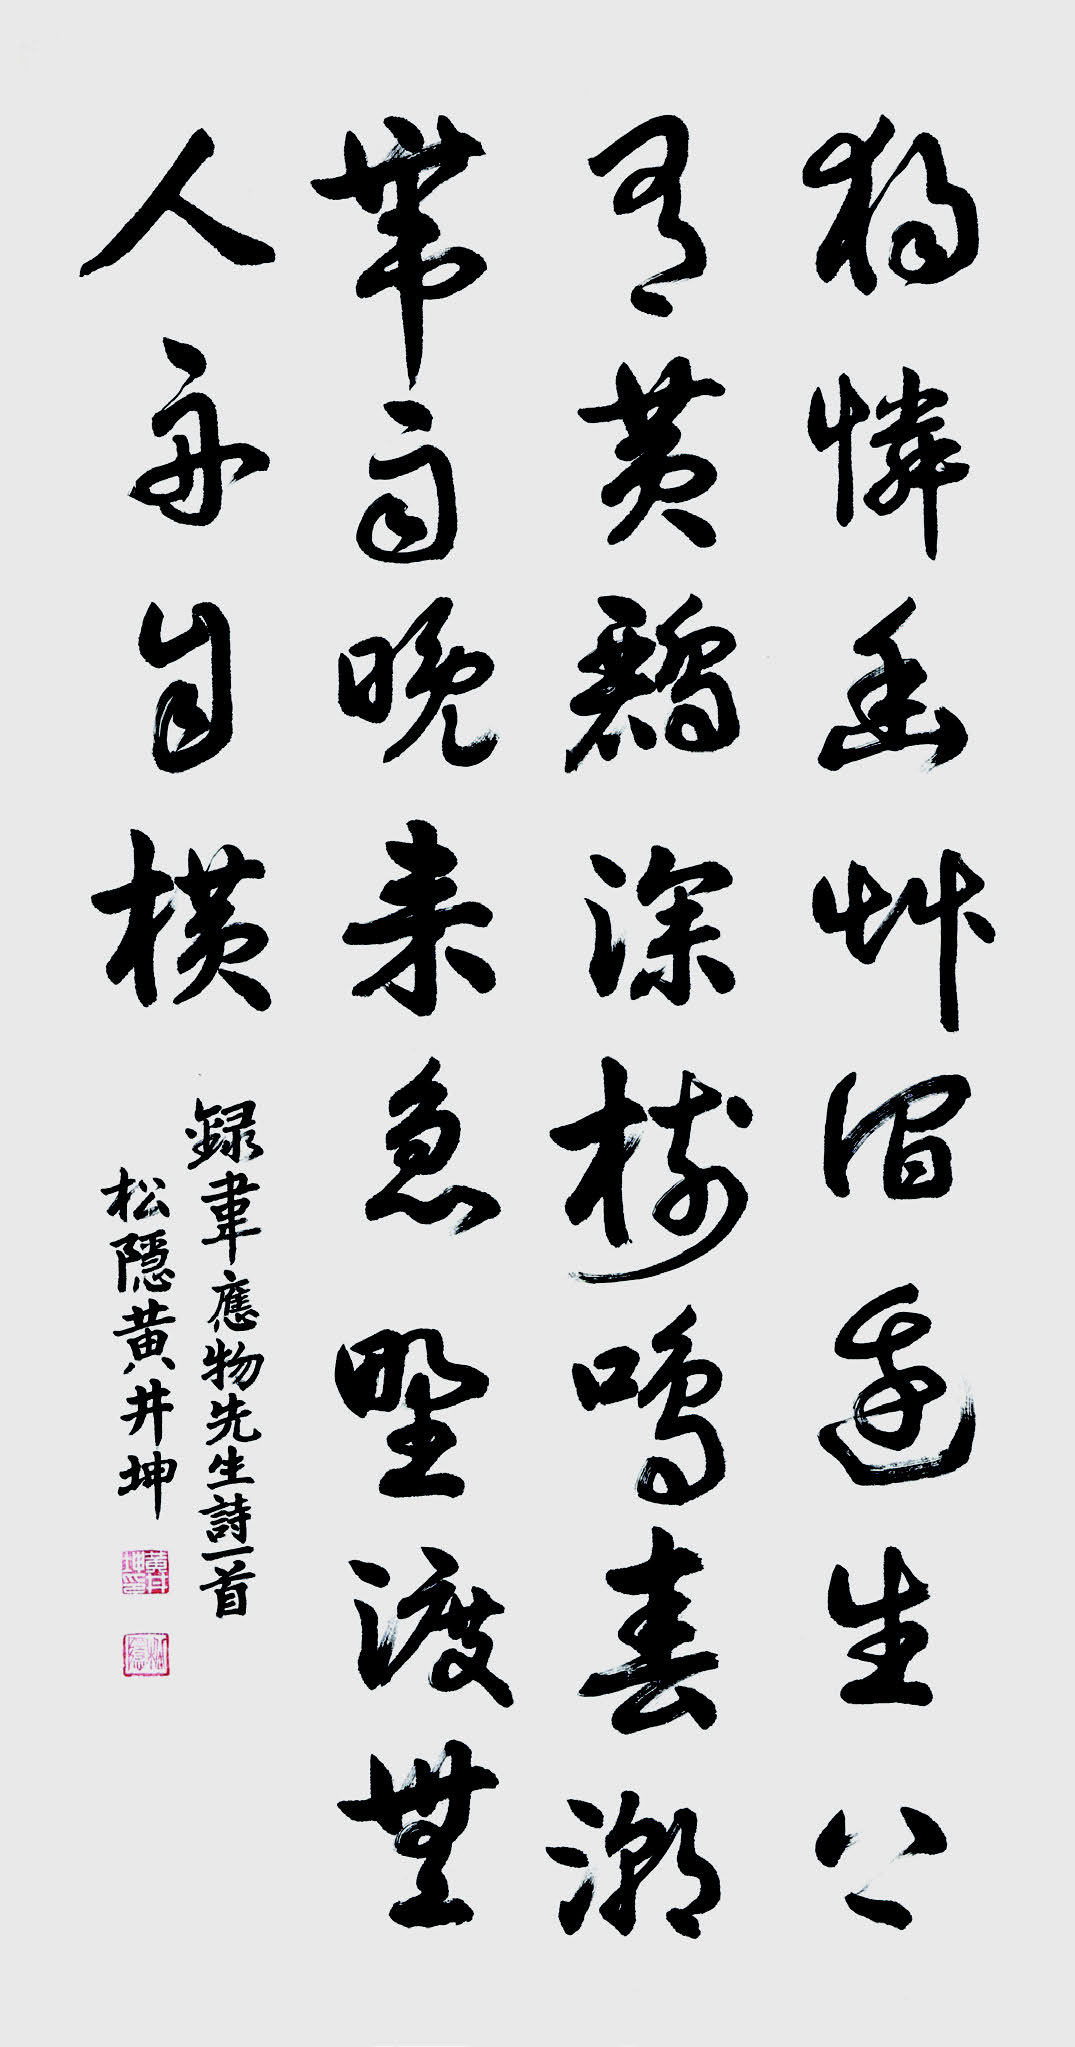 獨憐幽艸澗邊生上
有黃鸝深樹鳴春潮
帶雨晚来急野渡無
人舟自橫
録韋應物先生詩一首
松隱黃井坤
黃井坤印
松隱